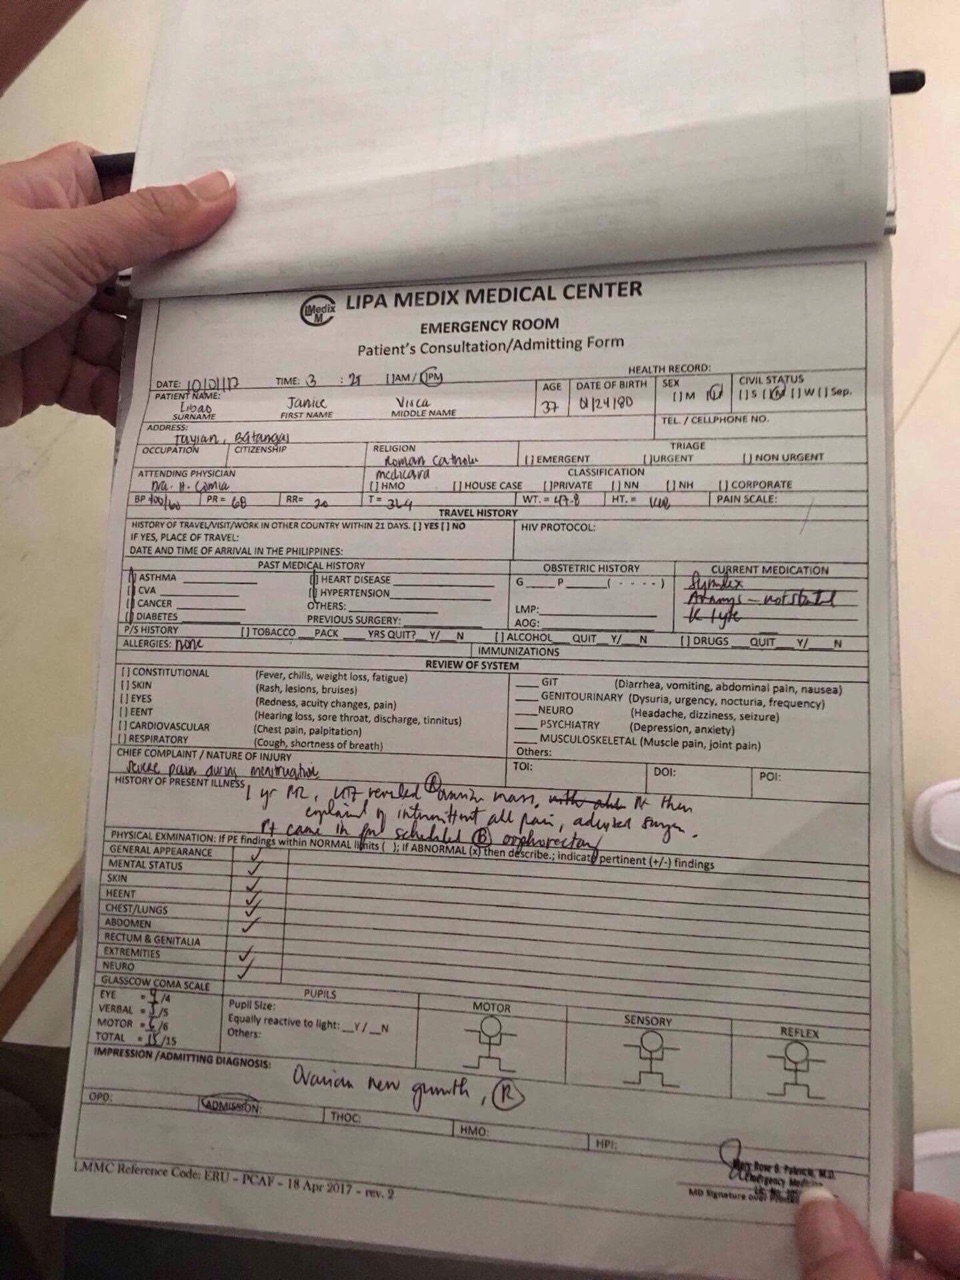 LMedix M
LIPA MEDIX MEDICAL CENTER
EMERGENCY ROOM
Patient's Consultation/Admitting Form
HEALTH RECORD:
DATE: 10/01/17 TIME: 3 : 25 [ ]AM / [ ]PM
PATIENT NAME:
Libao Janice Visca
SURNAME FIRST NAME MIDDLE NAME
AGE 37
DATE OF BIRTH 01/24/80
SEX [ ] M [ ]
CIVIL STATUS [ ] S [ ] [ ] W [ ] Sep.
ADDRESS: Batangas
TEL. / CELLPHONE NO.
OCCUPATION CITIZENSHIP RELIGION Roman Catholic
TRIAGE
[ ] EMERGENT [ ]URGENT [ ] NON URGENT
ATTENDING PHYSICIAN Dra. H. Comia
medicard
CLASSIFICATION
[ ] HMO [ ] HOUSE CASE [ ]PRIVATE [ ] NN [ ] NH [ ] CORPORATE
BP 100/60 PR= 68 RR= 20 T= 36.9 WT. = 47.8 HT. = PAIN SCALE:
TRAVEL HISTORY
HISTORY OF TRAVEL/VISIT/WORK IN OTHER COUNTRY WITHIN 21 DAYS. [ ] YES [ ] NO
IF YES, PLACE OF TRAVEL:
DATE AND TIME OF ARRIVAL IN THE PHILIPPINES:
HIV PROTOCOL:
PAST MEDICAL HISTORY
[ ] ASTHMA [ ] HEART DISEASE
[ ] CVA [ ] HYPERTENSION
[ ] CANCER OTHERS:
[ ] DIABETES PREVIOUS SURGERY:
OBSTETRIC HISTORY
G P ( - - - - )
LMP:
AOG:
CURRENT MEDICATION
P/S HISTORY [ ] TOBACCO PACK YRS QUIT? Y/ N [ ] ALCOHOL QUIT Y/ N [ ] DRUGS QUIT Y/ N
ALLERGIES: none IMMUNIZATIONS
REVIEW OF SYSTEM
[ ] CONSTITUTIONAL (Fever, chills, weight loss, fatigue)
[ ] SKIN (Rash, lesions, bruises)
[ ] EYES (Redness, acuity changes, pain)
[ ] EENT (Hearing loss, sore throat, discharge, tinnitus)
[ ] CARDIOVASCULAR (Chest pain, palpitation)
[ ] RESPIRATORY (Cough, shortness of breath)
GIT (Diarrhea, vomiting, abdominal pain, nausea)
GENITOURINARY (Dysuria, urgency, nocturia, frequency)
NEURO (Headache, dizziness, seizure)
PSYCHIATRY (Depression, anxiety)
MUSCULOSKELETAL (Muscle pain, joint pain)
Others:
CHIEF COMPLAINT / NATURE OF INJURY
severe pain during menstruation
TOI: DOI: POI:
HISTORY OF PRESENT ILLNESS
1 yr revealed R ovarian mass, Pt then
complained of intermittent pain, advised surgery.
Pt came in for scheduled R oophorectomy
PHYSICAL EXMINATION: If PE findings within NORMAL limits ( ); if ABNORMAL (x) then describe.; indicate pertinent (+/-) findings
GENERAL APPEARANCE ✓
MENTAL STATUS ✓
SKIN ✓
HEENT ✓
CHEST/LUNGS ✓
ABDOMEN ✓
RECTUM & GENITALIA
EXTREMITIES ✓
NEURO ✓
GLASSCOW COMA SCALE
EYE = 4 /4
VERBAL = 5 /5
MOTOR = 6 /6
TOTAL = 15 /15
PUPILS
Pupil Size:
Equally reactive to light: __Y / __N
Others:
MOTOR SENSORY REFLEX
IMPRESSION /ADMITTING DIAGNOSIS:
Ovarian new growth, R
OPD: ADMISSION: THOC: HMO: HPI:
Emergency Medicine
MD Signature over
LMMC Reference Code: ERU – PCAF – 18 Apr 2017 – rev. 2